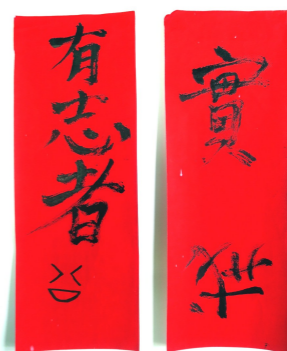 有志者
實